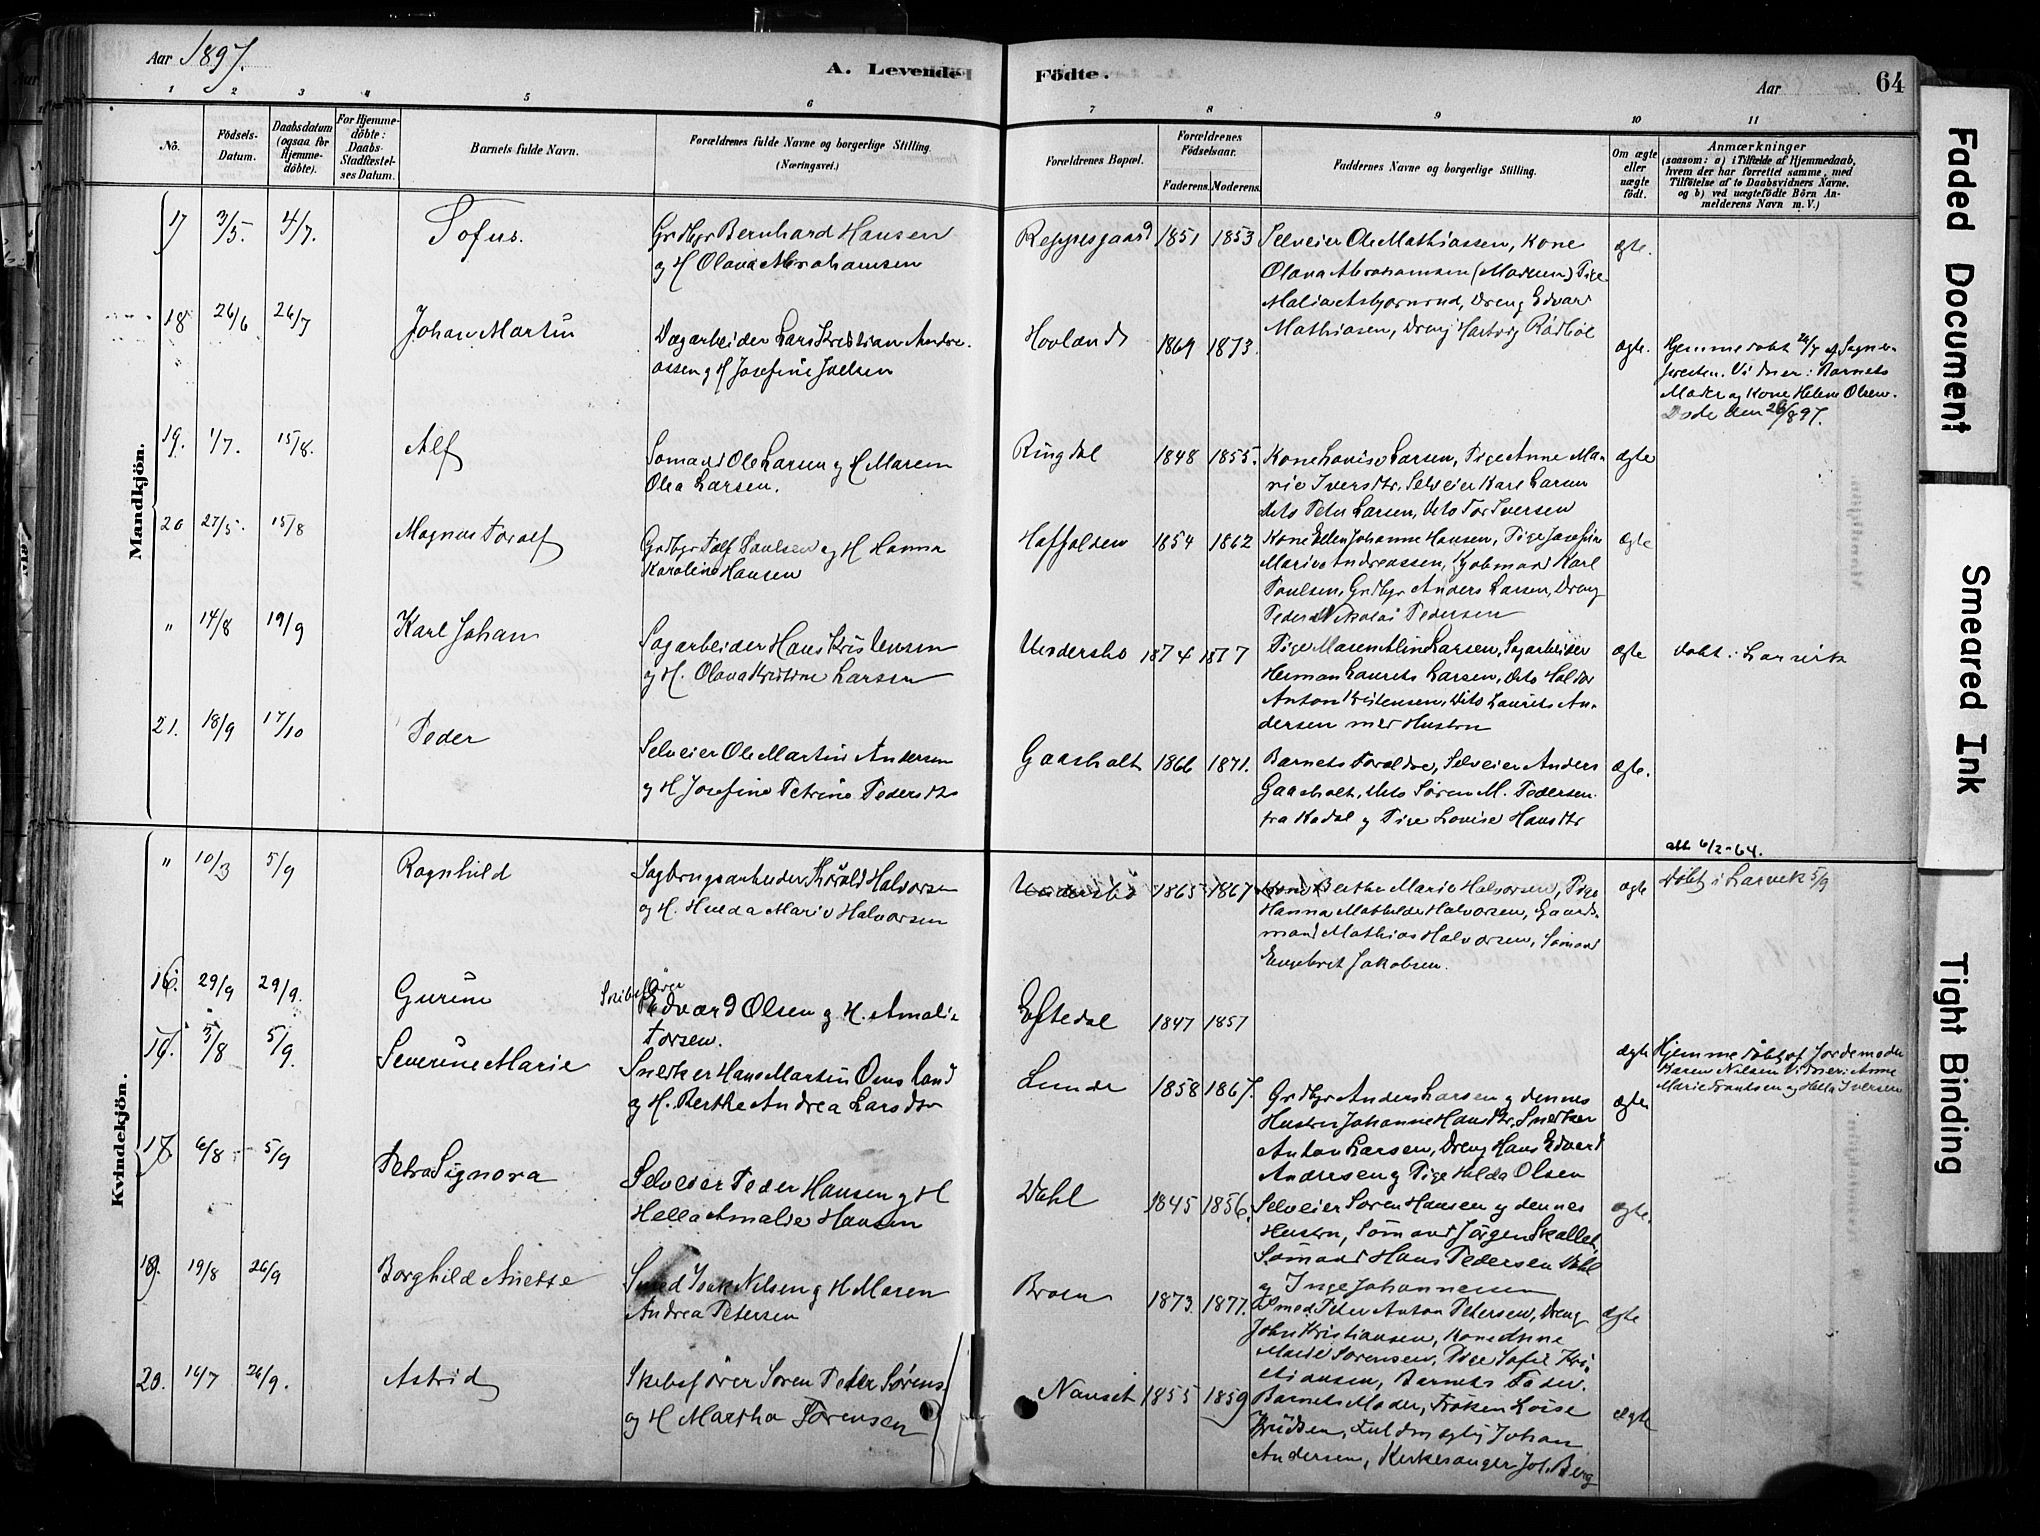 Aar 1897.
A. Levende Födte.
Aar
64
1 2 3 4 5 6 7 8 9 10 11
No.
Födsels-Datum.
Daabsdatum (ogsaa for Hjemme-döbte).
For Hjemme-döbte: Daabs-Stadfæstel-ses Datum.
Barnets fulde Navn.
Forældrenes fulde Navne og borgerlige Stilling. (Næringsvei.)
Forældrenes Bopæl.
Forældrenes Födselsaar.
Faderens. Moderens.
Faddernes Navne og borgerlige Stilling.
Om ægte eller uægte födt.
Anmærkninger
(saasom: a) i Tilfælde af Hjemmedaab,
hvem der har forrettet samme, med
Tilföielse af to Daabsvidners Navne.
og b) ved uægtefödte Börn An-
melderens Navn m. V.)
Mandkjön.
17 3/5. 4/7. Sofus.
Grdbgr Bernhard Hansen
og H Olava Abrahamsen
1851 1853
Selveier Ole Mathiassen, Kone
Olava Abrahamsen (Moderen) Pige
Malia Asbjørnrud, Dreng Edvard
Mathiasen, Dreng Hartvig Rødbøl
ægte.
18 26/6 26/7 Johan Martin
Dagarbeider Lars Kristian Andre-
assen og H Josefine Joelsen
Hovland 1869 1873.
ægte.
Hjemmedøbt 26/7 af Sogne-
presten. Vidner: Barnets
Moder og Kone Helene Olsen.
Døde den 26/8 97.
19. 1/7. 15/8. Alf
Sømand Ole Larsen og H Maren
Olea Larsen.
Ringdal 1848 1855.
Kone Lovise Larsen, Pige Anne Ma-
rie Iversdtr, Selveier Karl Larsen
dito Peter Larsen, dito Tor Iversen
ægte
20 27/5. 15/8 Magnus Toralf
Grdbgr Tolf Paulsen og H Hanna
Karoline Hansen
1854 1862
Kone Ellen Johanne Hansen, Pige Josefine
Marie Andreassen, Kjøbmand Karl
Paulsen, Grdbgr Anders Larsen, Dreng
Peder Nikolai Pedersen
ægte
" 14/8 19/9 Karl Johan
Sagarbeider Hans Kristensen
og H. Olava Kristine Larsen
Undersbo 1874 1877
Pige Maren Aline Larsen, Sagarbeider
Herman Laurets Larsen, dito Haldor
Anton Kristensen, dito Laurits An-
dersen med Hustru
ægte
døbt i Larvik
21. 18/9 17/10 Peder
Selveier Ole Martin Andersen
og H Josefine Petrine Pedersdtr
Gaasholt 1866 1871.
Barnets Forældre, Selveier Anders
Gaasholt, dito Søren M. Pedersen
fra Kodal og Pige Lovise Hansdtr
ægte.
att 6/2-64.
Kvindekjön.
" 10/3 5/9 Ragnhild
Sagbrugsarbeider Thorald Halvorsen
og H. Hulda Marie Halvorsen
Undersbo 1865 1867
Kone Berthe Marie Halvorsen, Pige
Hanna Mathilde Halvorsen, Gaard-
mand Mathias Halvorsen, Sømand
Engebret Jakobsen.
ægte
Døbt i Larvik 5/9
16. 29/9 29/9. Gurine
Skibsfører
Edvard Olsen og H. Amalie
Torsen.
Eftedal 1847 1857
ægte
Hjemmedøbt af Jordemoder
Karen Nilsen Vidner: Anne
Marie Frantsen og Hella Iversen
5/8 5/9. Severine Marie
Snedker Hans Martin Omsland
og H. Berthe Andrea Larsdtr
Lunde 1858 1867.
Grdbgr Anders Larsen og dennes
Hustru Johanne Hansdtr, Snedker
Anton Larsen, Dreng Hans Edvard
Andresen og Pige Hilda Olsen
ægte
6/8 5/9 Petra Signora
Selveier Peder Hansen og H
Hella Amalie Hansen
Dahl 1845 1856.
Selveier Søren Hansen og dennes
Hustru, Sømand Jørgen Skallet,
Sømand Hans Pedersen Dahl
og Inge Johannesen
ægte.
19. 19/8 26/9 Borghild Anette
Smed Isak Nilsen og H Maren
Andrea Petersen
1873. 1877.
Smed Peter Anton Petersen, Dreng
John Kristiansen, Kone Anne
Marie Sørensen, Pige Sofie Kri-
stiansen, Barnets Fader.
ægte
20. 14/7 26/9. Astrid
Skibsfører Søren Peder Sørens.
og H Martha Sørensen
Nanset 1855 1859
Barnets Moder, Frøken Loise
Knudsen, Fuldmægtig Johan
Andersen, Kirkesanger Joh. Berg
ægte
Faded Document
Smeared Ink
Tight Binding